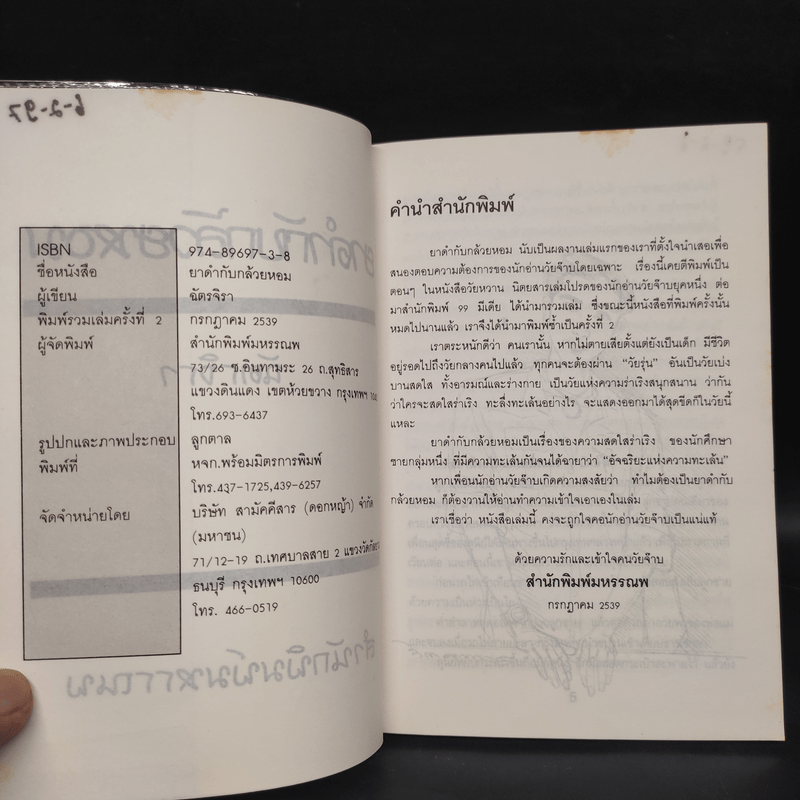 6-2-97
ISBN 974-89697-3-8
ชื่อหนังสือ ยาดำกับกล้วยหอม
ผู้เขียน ฉัตรจิรา
พิมพ์รวมเล่มครั้งที่ 2 กรกฎาคม 2539
ผู้จัดพิมพ์ สำนักพิมพ์มหรรณพ
73/26 ซ.อินทามระ 26 ถ.สุทธิสาร
แขวงดินแดง เขตห้วยขวาง กรุงเทพฯ
โทร.693-6437
รูปปกและภาพประกอบ ลูกตาล
พิมพ์ที่ หจก.พร้อมมิตรการพิมพ์
โทร.437-1725,439-6257
จัดจำหน่ายโดย บริษัท สามัคคีสาร (ดอกหญ้า) จำกัด
(มหาชน)
71/12-19 ถ.เทศบาลสาย 2 แขวงวัดกัลยาณ์
ธนบุรี กรุงเทพฯ 10600
โทร. 466-0519
คำนำสำนักพิมพ์
ยาดำกับกล้วยหอม นับเป็นผลงานเล่มแรกของเราที่ตั้งใจนำเสนอเพื่อ
สนองตอบความต้องการของนักอ่านวัยจ๊าบโดยเฉพาะ เรื่องนี้เคยตีพิมพ์เป็น
ตอนๆ ในหนังสือวัยหวาน นิตยสารเล่มโปรดของนักอ่านวัยจ๊าบยุคหนึ่ง ต่อ
มาสำนักพิมพ์ 99 มีเดีย ได้นำมารวมเล่ม ซึ่งขณะนี้หนังสือที่พิมพ์ครั้งนั้น
หมดไปนานแล้ว เราจึงได้นำมาพิมพ์ซ้ำเป็นครั้งที่ 2
เราตระหนักดีว่า คนเรานั้น หากไม่ตายเสียตั้งแต่ยังเป็นเด็ก มีชีวิต
อยู่รอดไปถึงวัยกลางคนไปแล้ว ทุกคนจะต้องผ่าน "วัยรุ่น" อันเป็นวัยเบ่ง
บานสดใส ทั้งอารมณ์และร่างกาย เป็นวัยแห่งความร่าเริงสนุกสนาน ว่ากัน
ว่าใครจะสดใสร่าเริง ทะลึ่งทะเล้นอย่างไร จะแสดงออกมาได้สุดขีดก็ในวัยนี้
แหละ
ยาดำกับกล้วยหอมเป็นเรื่องของความสดใสร่าเริง ของนักศึกษา
ชายกลุ่มหนึ่ง ที่มีความทะเล้นกันจนได้ฉายาว่า "อัจฉริยะแห่งความทะเล้น"
หากเพื่อนนักอ่านวัยจ๊าบเกิดความสงสัยว่า ทำไมต้องเป็นยาดำกับ
กล้วยหอม ก็ต้องวานให้อ่านทำความเข้าใจเอาเองในเล่ม
เราเชื่อว่า หนังสือเล่มนี้ คงจะถูกใจคอนักอ่านวัยจ๊าบเป็นแน่แท้
ด้วยความรักและเข้าใจคนวัยจ๊าบ
สำนักพิมพ์มหรรณพ
กรกฎาคม 2539